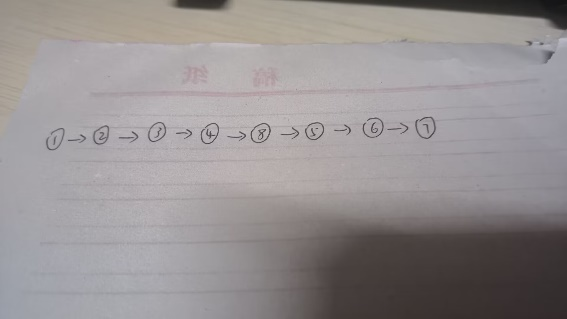 稿 纸
①→②→③→④→⑧→⑤→⑥→⑦